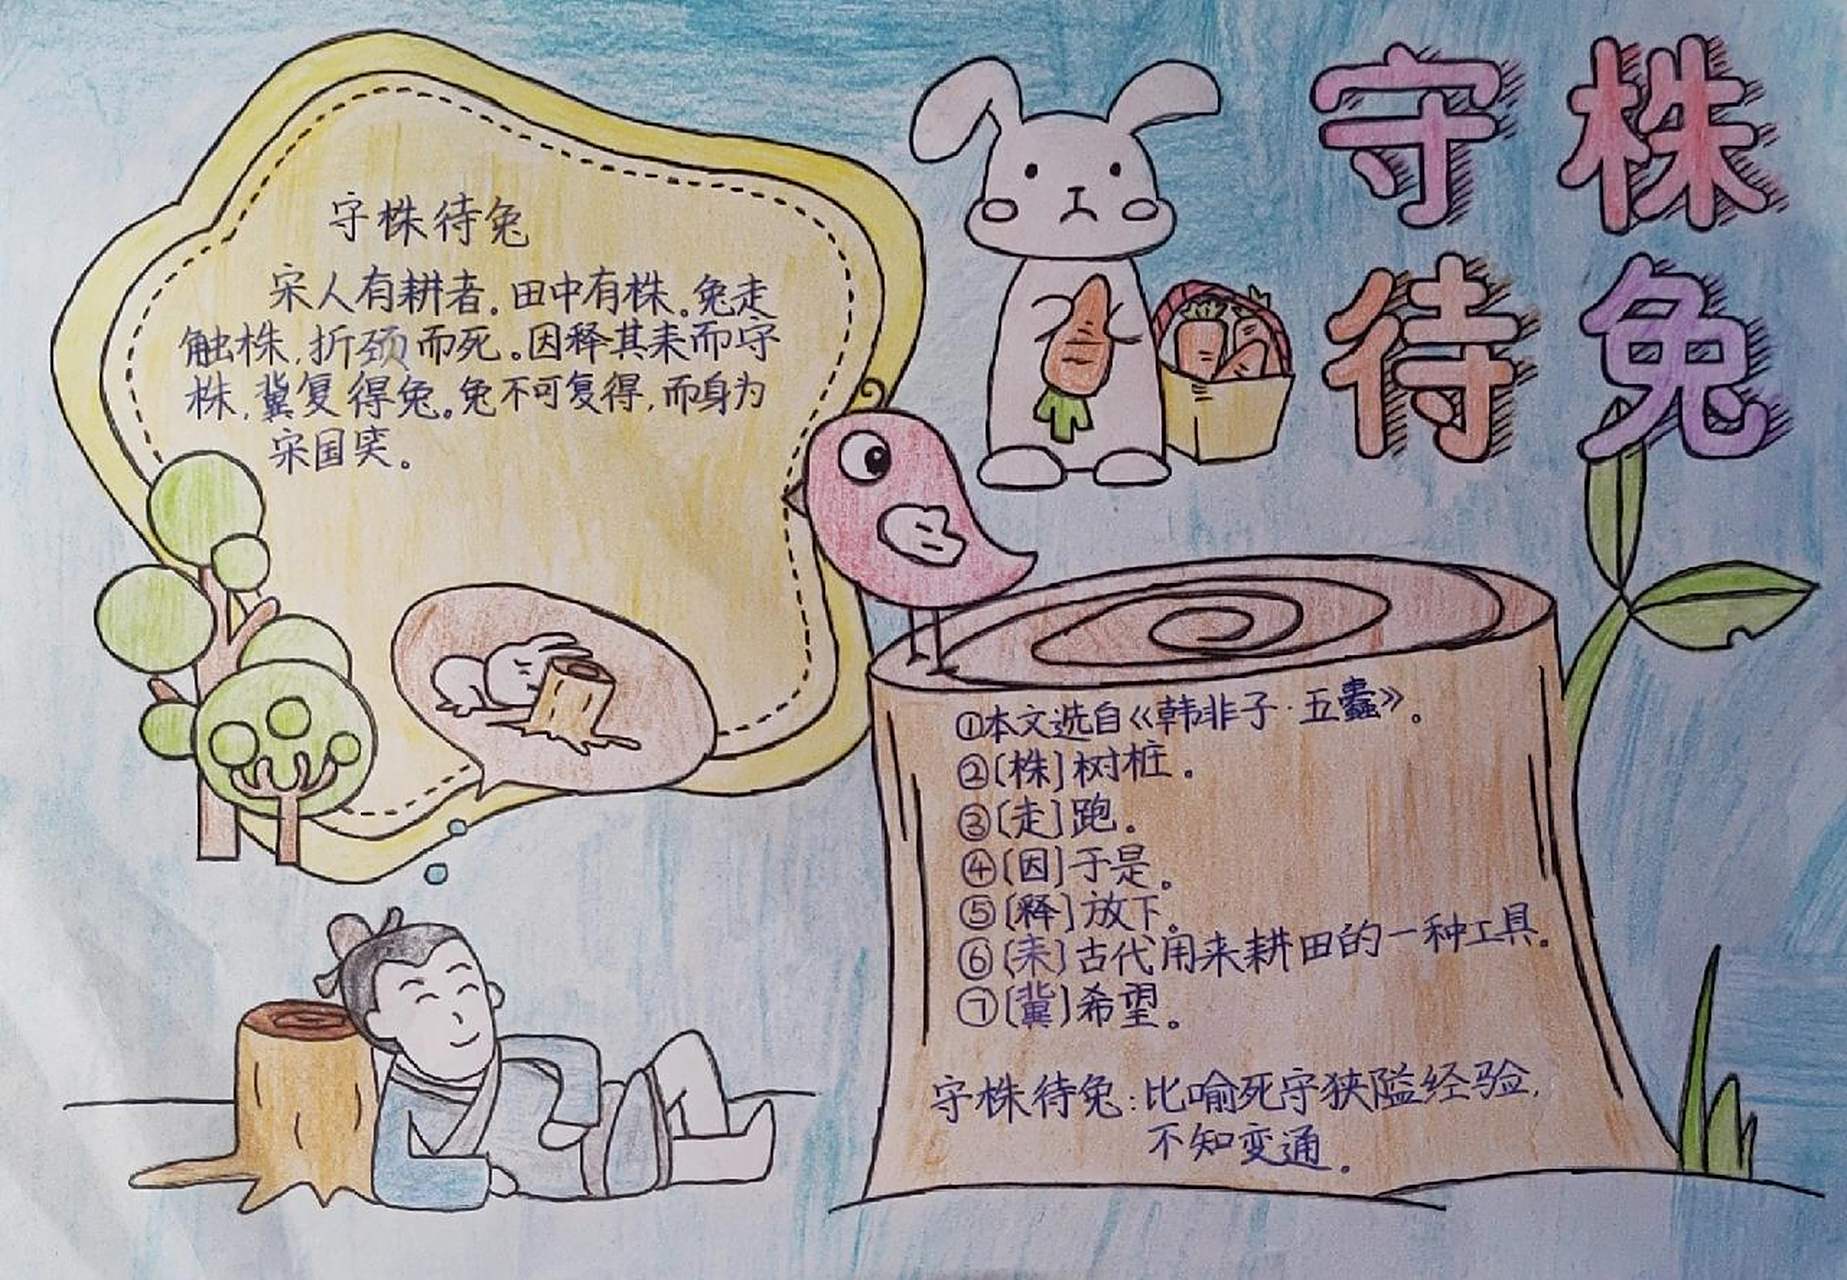 守株
待兔
守株待兔
宋人有耕者。田中有株。兔走
触株,折颈而死。因释其耒而守
株,冀复得兔。兔不可复得,而身为
宋国笑。
①本文选自《韩非子·五蠹》。
②〔株〕树桩。
③〔走〕跑。
④〔因〕于是。
⑤〔释〕放下。
⑥〔耒〕古代用来耕田的一种工具。
⑦〔冀〕希望。
守株待兔:比喻死守狭隘经验,
不知变通。